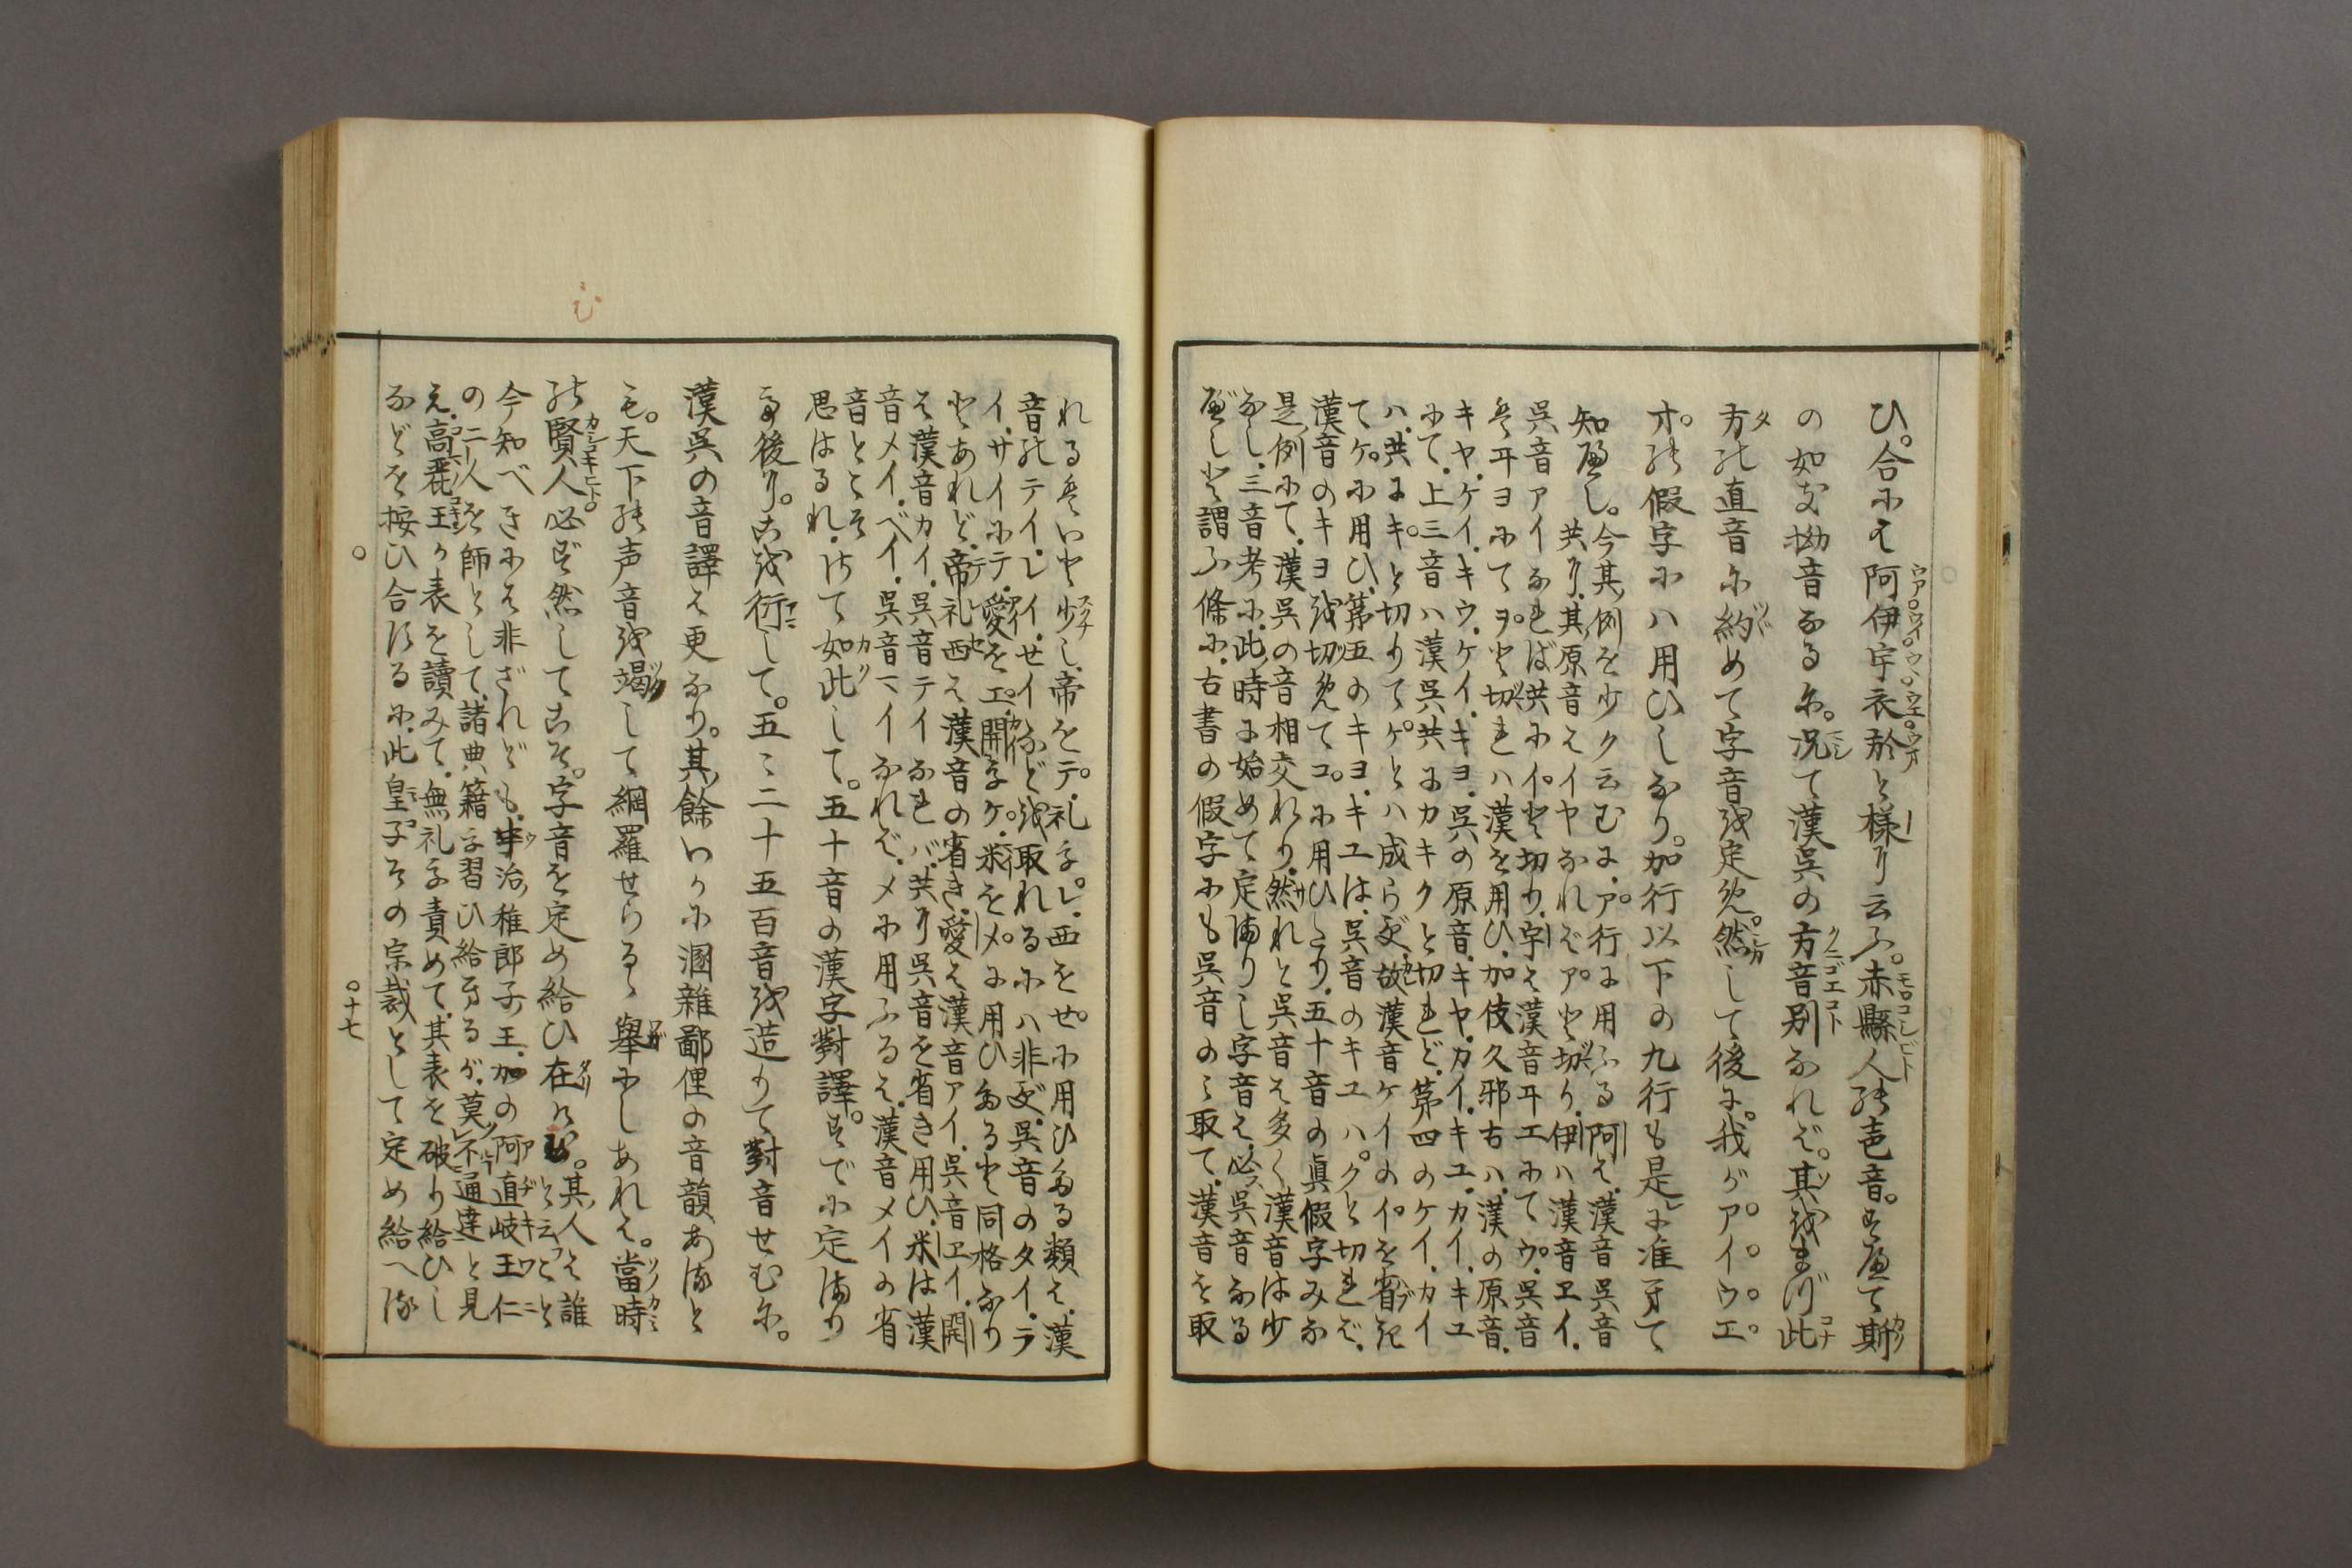 ひ。合にも阿伊宇衣於と様に云ふ。赤縣人の声音。すべて斯
の如き拗音なるに。况て漢呉の方音別なれば。其をまづ此
方の直音に約めて字音を定め。然して後に。我がアイウエ
オの假字には用ひしなり。加行以下の九行も是に准へて
知べし。今其例を少く云むに、ア行に用ふる阿は、漢音呉音
共に、其原音はイヤなればアと切り、伊は漢音ヱイ、
呉音アイなれば共にイと切り、宇は漢音ヰエにてウ、呉音
はヰヨにてヲと切れば漢を用ひ、加伎久邪古は、漢の原音、
キヤ、ケイ、キウ、ケイ、キヨ、呉の原音、キヤ、カイ、キユ、カイ、キユ
にて、上三音は漢呉共にカキクと切れど、第四のケイ、カイ
は、共にキと切りてケとは成らず、故漢音ケイのイを省き
てケに用ひ、第五のキヨ、キユは、呉音のキユは、クと切れば、
漢音のキヨを切めてコに用ひたり、五十音の眞假字みな
是例にて、漢呉の音相交れり、然れと呉音は多く漢音は少
なし、三音考に、此時に始めて定まりし字音は、必呉音なる
べしと謂ふ條に、古書の假字にも呉音のミ取て、漢音を取
れるはいと少し、帝をテ、礼をレ、西をセに用ひたる類は、漢
音のテイ、レイ、セイなどを取れるには非ず、呉音のタイ、ラ
イ、サイにテ、愛をエ、開をケ、米をメに用ひたると同格なり
とあれど、帝礼西は漢音の省き、愛は漢音アイ、呉音ヱイ、開
は漢音カイ、呉音テイなれば、共に呉音を省き用ひ、米は漢
音メイ、ベイ、呉音マイなれば、メに用ふるは、漢音メイの省
音とこそ
思はるれ、さて如此して。五十音の漢字對譯。すでに定まり
て後に。古を行して。五々二十五百音を造りて對音せむに。
漢呉の音譯は更なり。其餘いかに溷雜鄙俚の音韻あると
も。天下の声音を竭して網羅せらるゝ擧にしあれば。當時
の賢人必ず然してこそ。字音を定め給ひ在けむ。其人は誰と云こと
今知べきには非ざれども、宇治稚郎子王、加の阿直岐王仁
の二人を師として、諸典籍を習ひ給へるが、莫不通達と見
え、高麗王が表を讀みて、無礼を責めて、其表を破り給ひし
などを按ひ合するに、此皇子その宗裁として定め給へる
十七
む